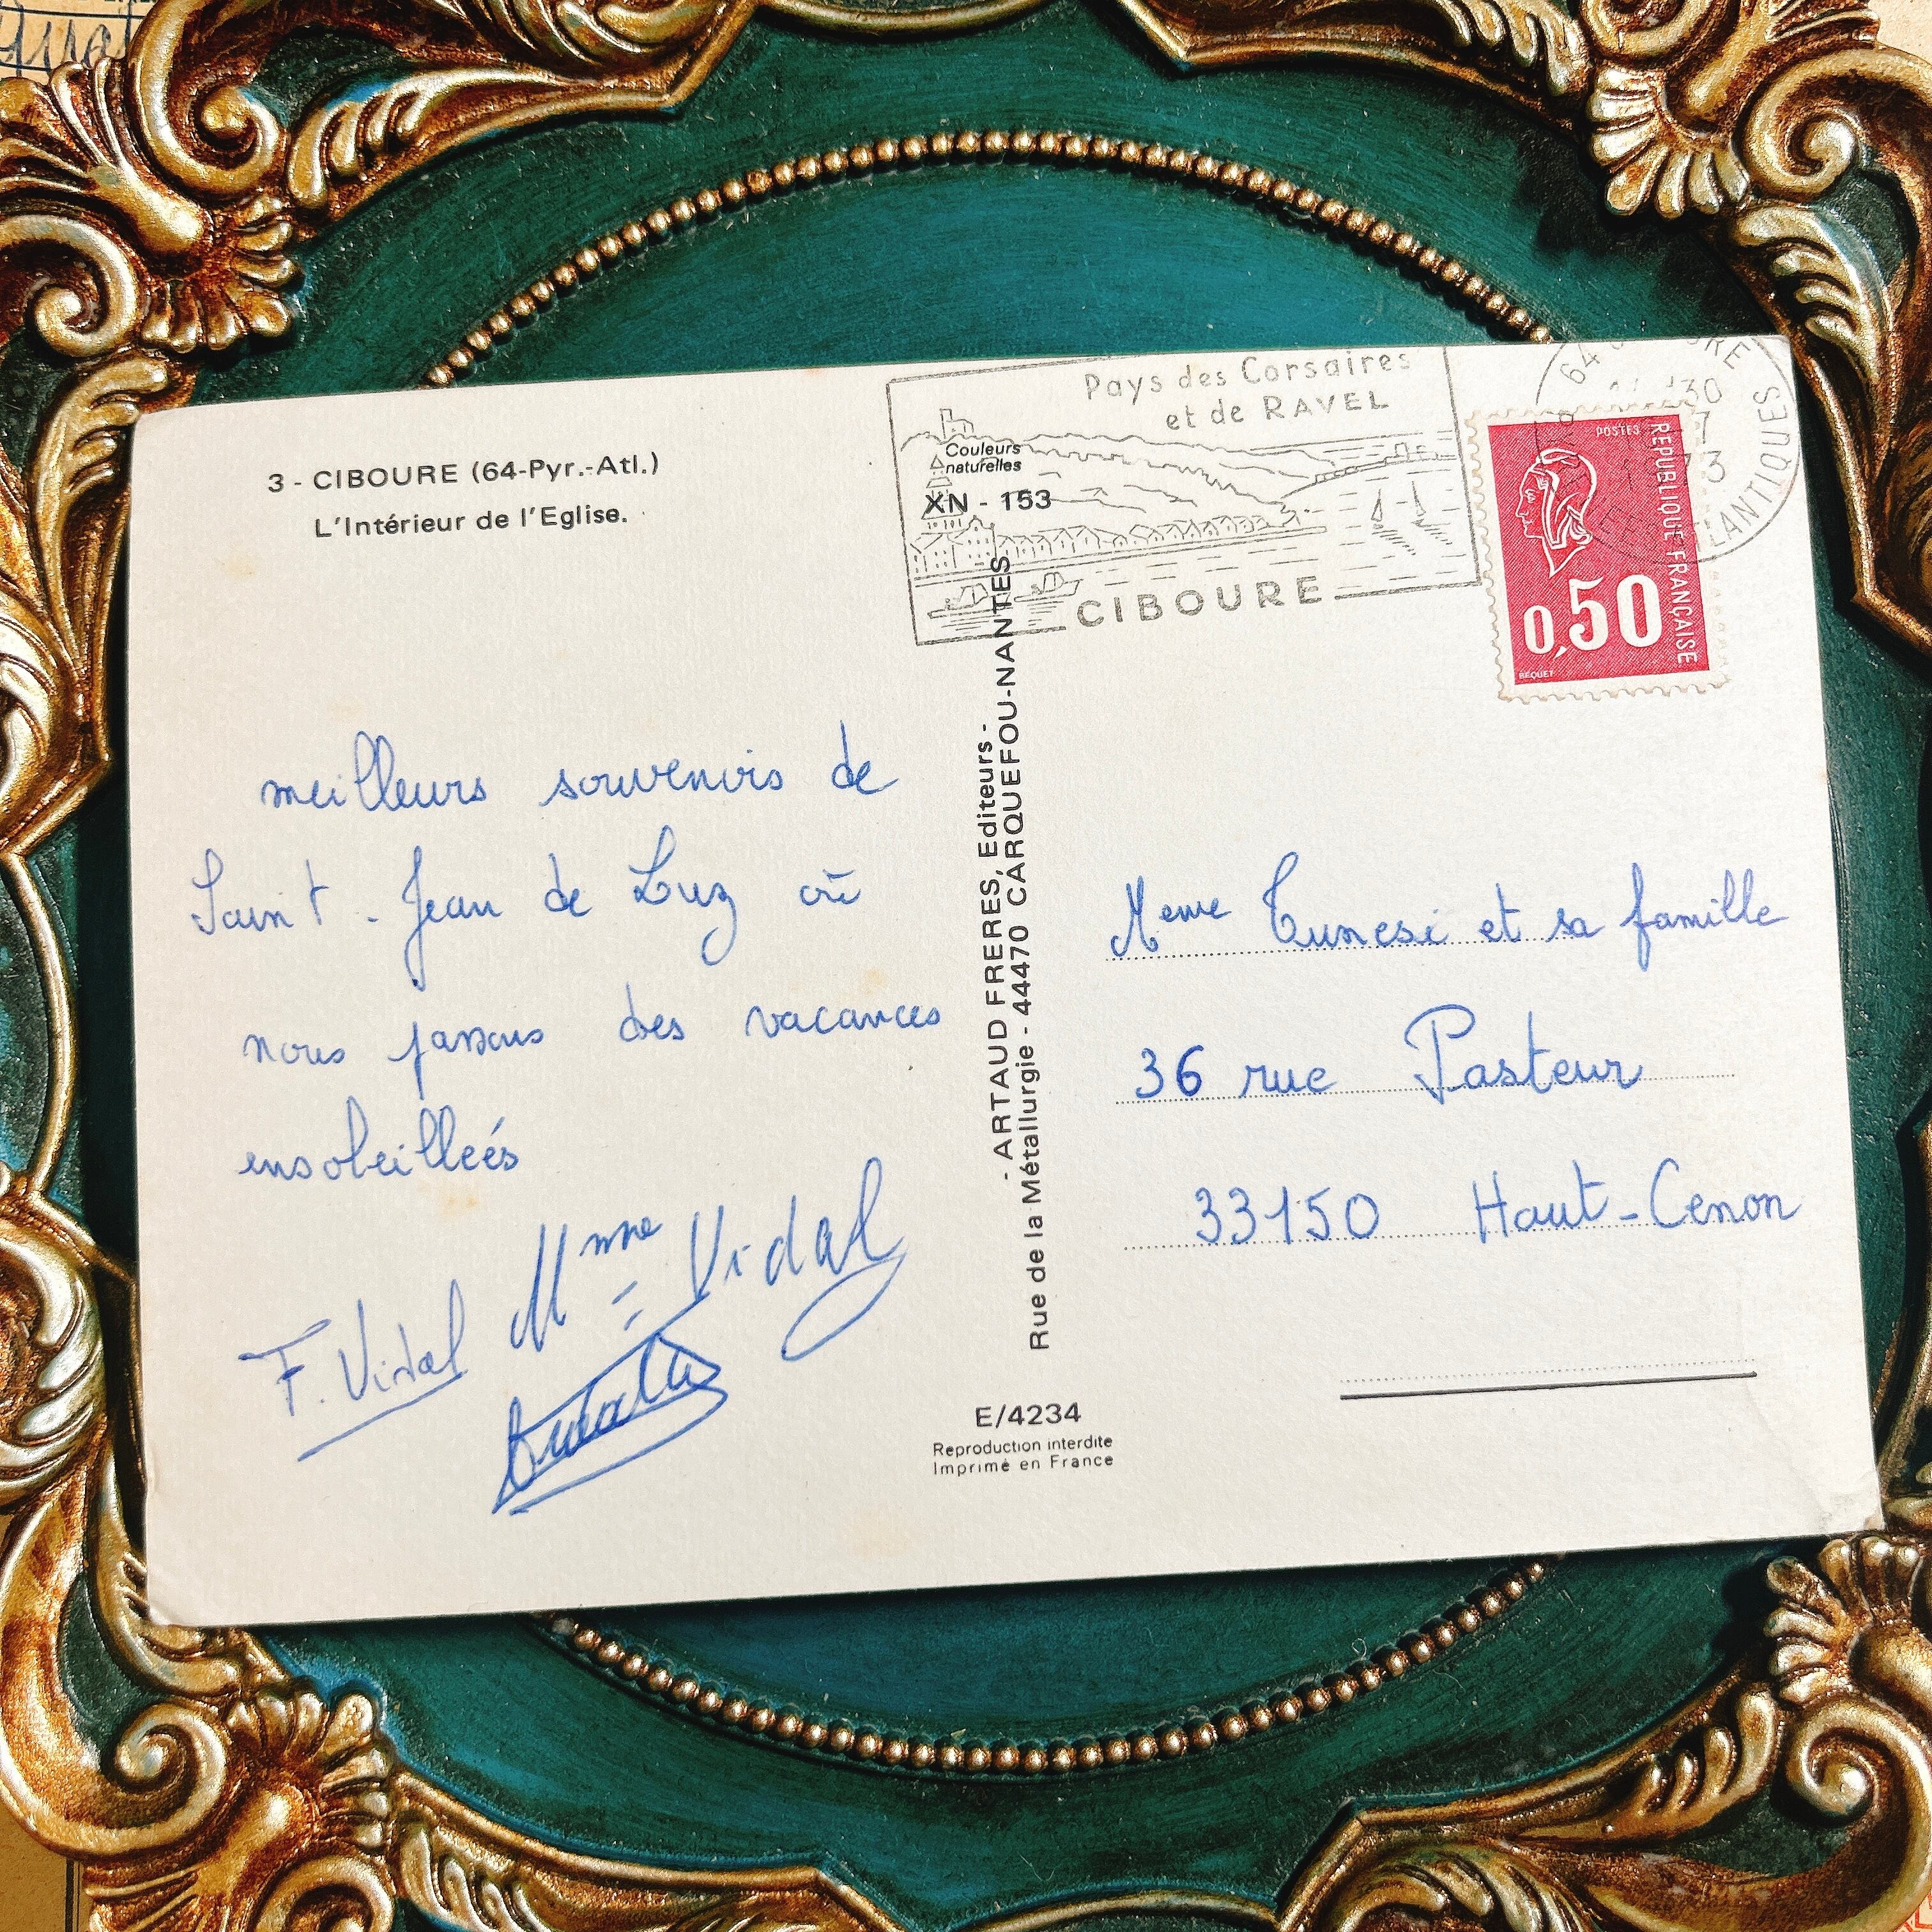 3 - CIBOURE (64-Pyr.-Atl.)
L'Intérieur de l'Eglise.
Pays des Corsaires
et de RAVEL
Couleurs
naturelles
XN - 153
CIBOURE
POSTES
REPUBLIQUE FRANÇAISE
0,50
BEQUET
64
30
73
meilleurs souvenirs de
Saint - Jean de Luz où
nous passons des vacances
ensoleilleés
Mme Vidal
F. Vidal
- ARTAUD FRERES, Editeurs -
Rue de la Métallurgie - 44470 CARQUEFOU-NANTES
Meme Tunesi et sa famille
36 rue Pasteur
33150 Haut-Cenon
E/4234
Reproduction interdite
Imprimé en France